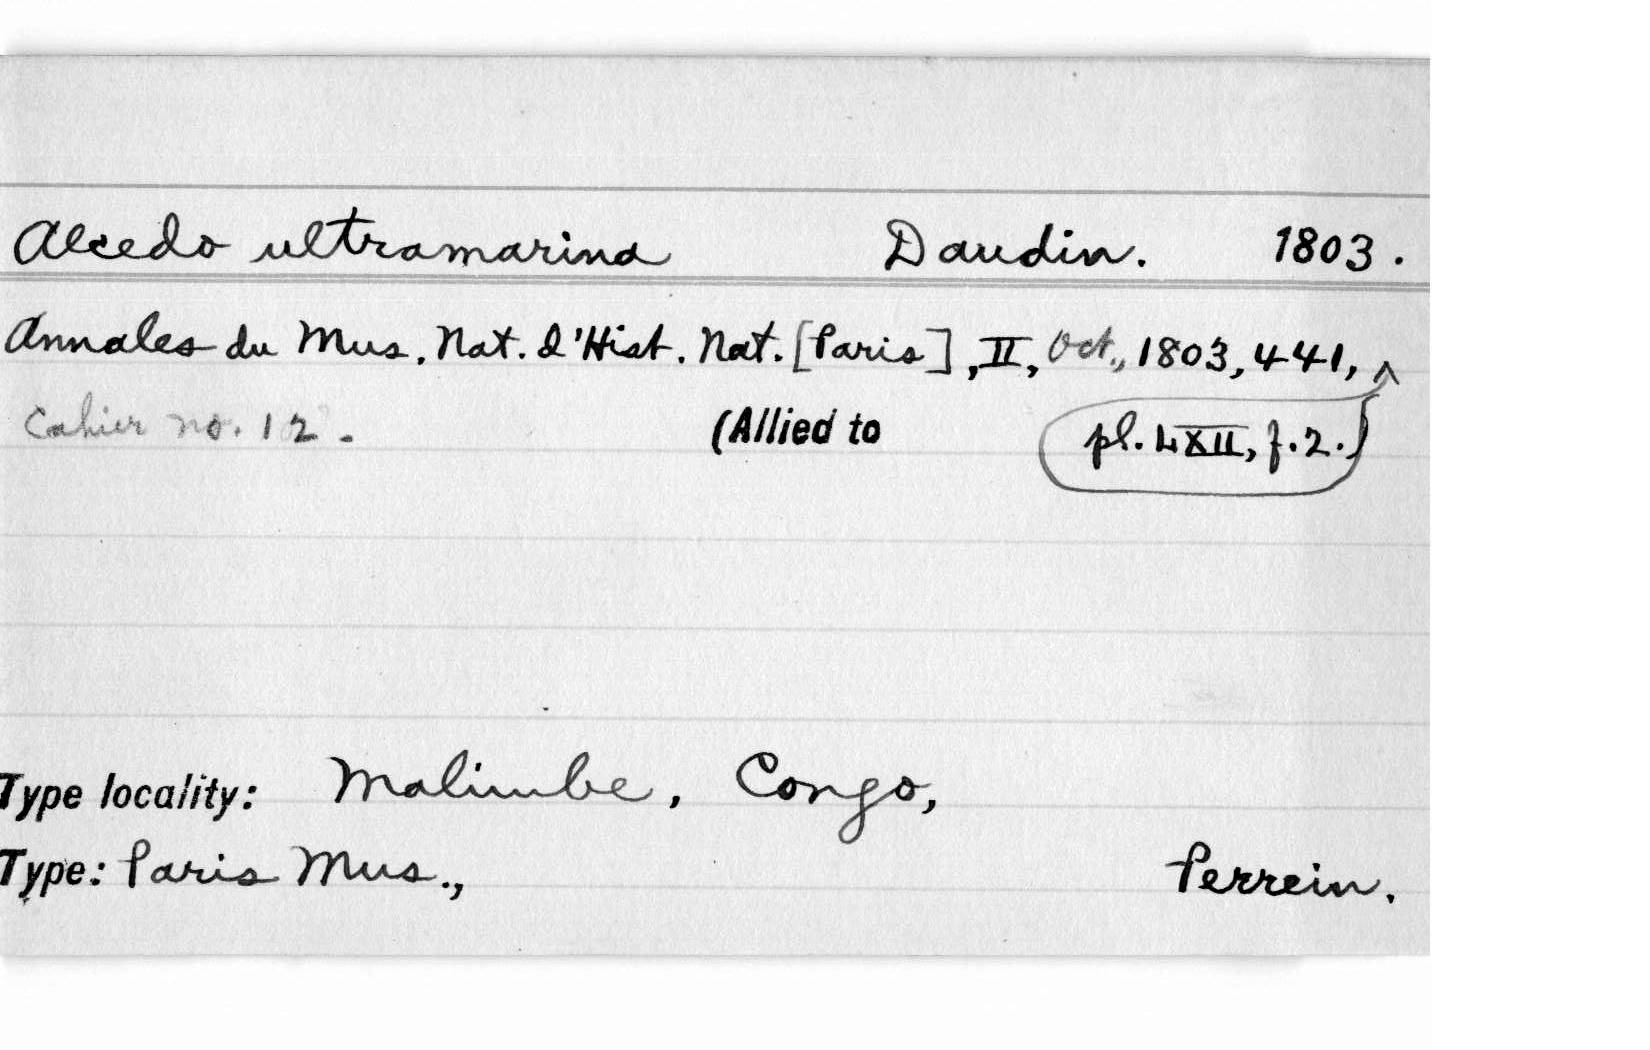 Alcedo ultramarina Daudin. 1803.
Annales du Mus. Nat. d'Hist. Nat. [Paris], II, Oct., 1803, 441, ^
Cahier no. 12. (Allied to pl. LXII, f.2.)
Type locality: Malimbe, Congo,
Type: Paris Mus., Perrein.